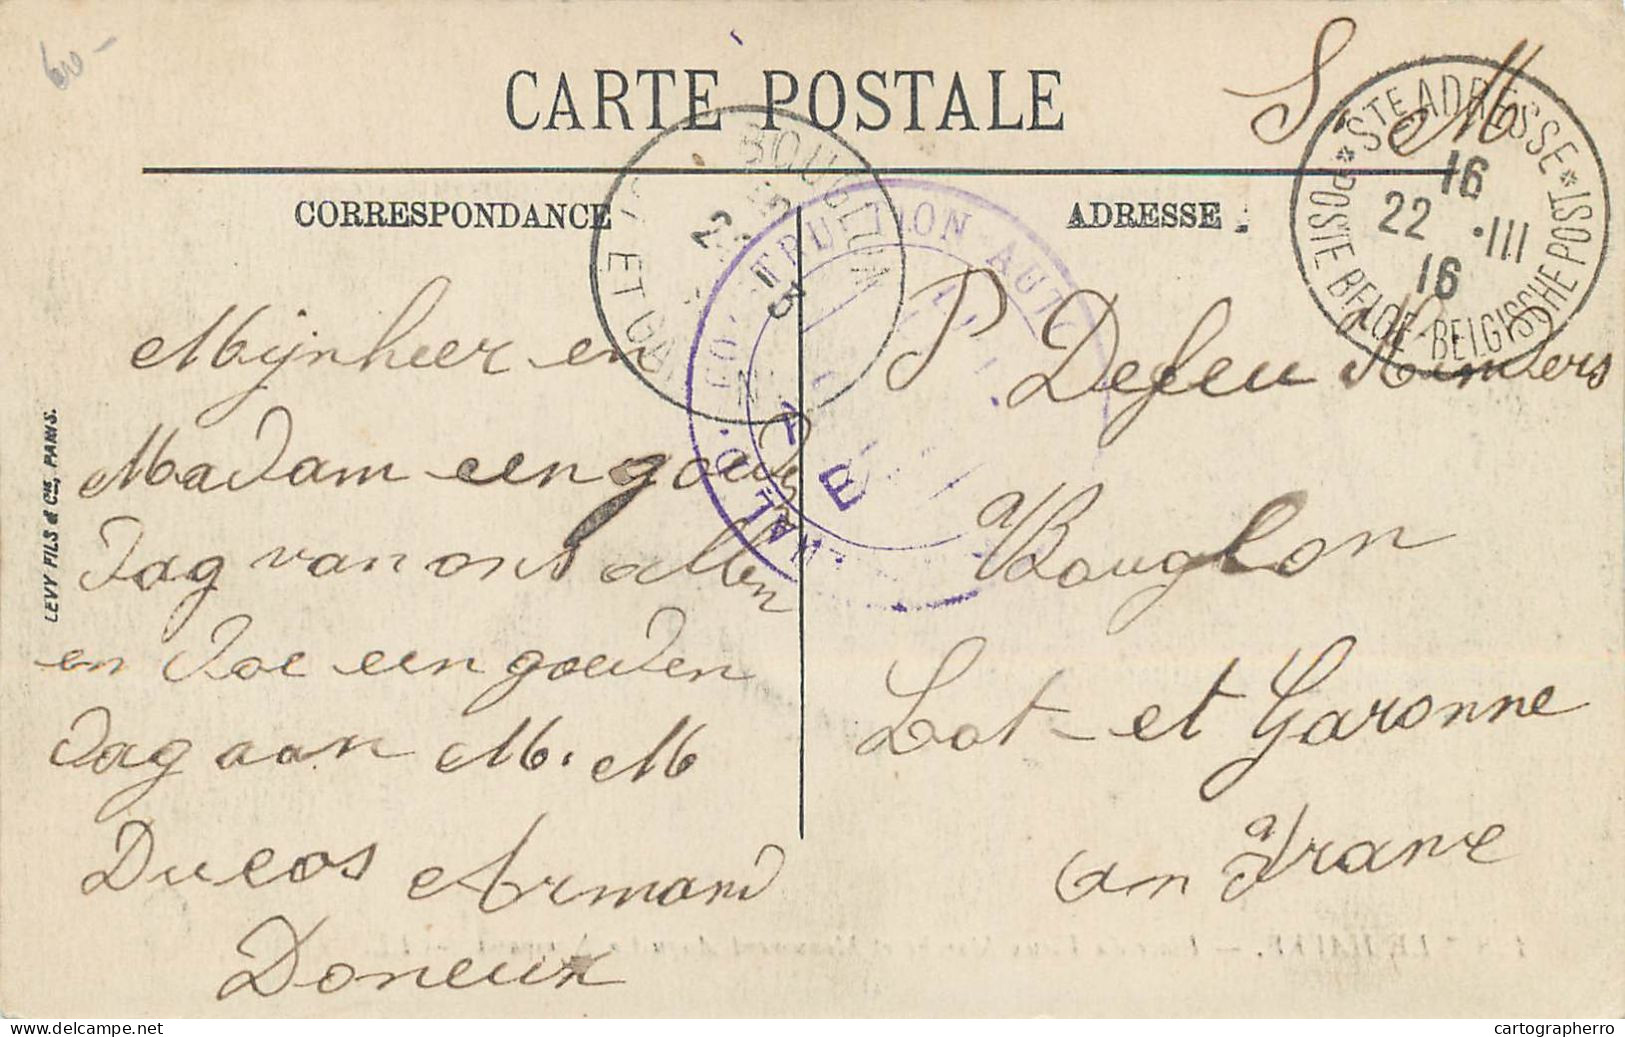 60-
CARTE POSTALE
S. M
CORRESPONDANCE
ADRESSE
STE ADRESSE * POSTE BELGE - BELGISCHE POST *
16
22 · III
16
BOUGLON
LOT ET GAR
Mijnheer en
Madam een goede
Dag van ons allen
en Doe een goeden
Dag aan M. M
Ducos Armand
Doneux
P Defeu Reinders
a Bouglon
Lot et Garonne
en France
LEVY FILS & Cie, PARIS.
LE HAVRE. -
cartographerro